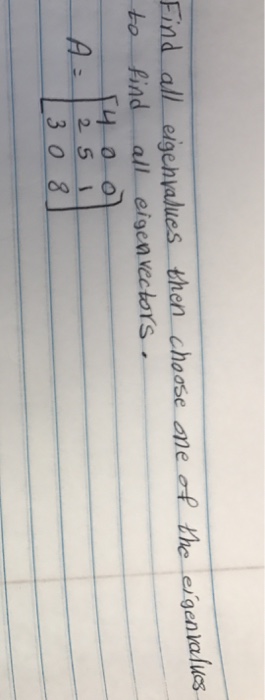 Find all eigenvalues then choose one of the eigenvalues
to find all eigenvectors.
A = [4 0 0
2 5 1
3 0 8]